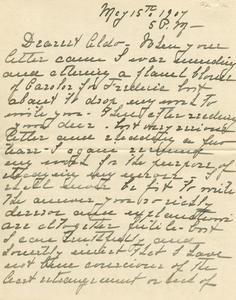 May 15th 1907
5 P.M —
Dearest Aldo — When your
letter came I was mending
and altering a flannel blouse
of Carolor for Frederic but
about to drop my work to
write you. I have after reading
your dear but very serious
letter and shedding a few
tears — I again resumed
my work for the purpose of
steadying my nerves. I
shall never be fit to write
the answer you so richly
deserve and explanations
are altogether futile — but
I can truthfully and
honestly insist that I have
not been conscious of the
least estrangement or lack of